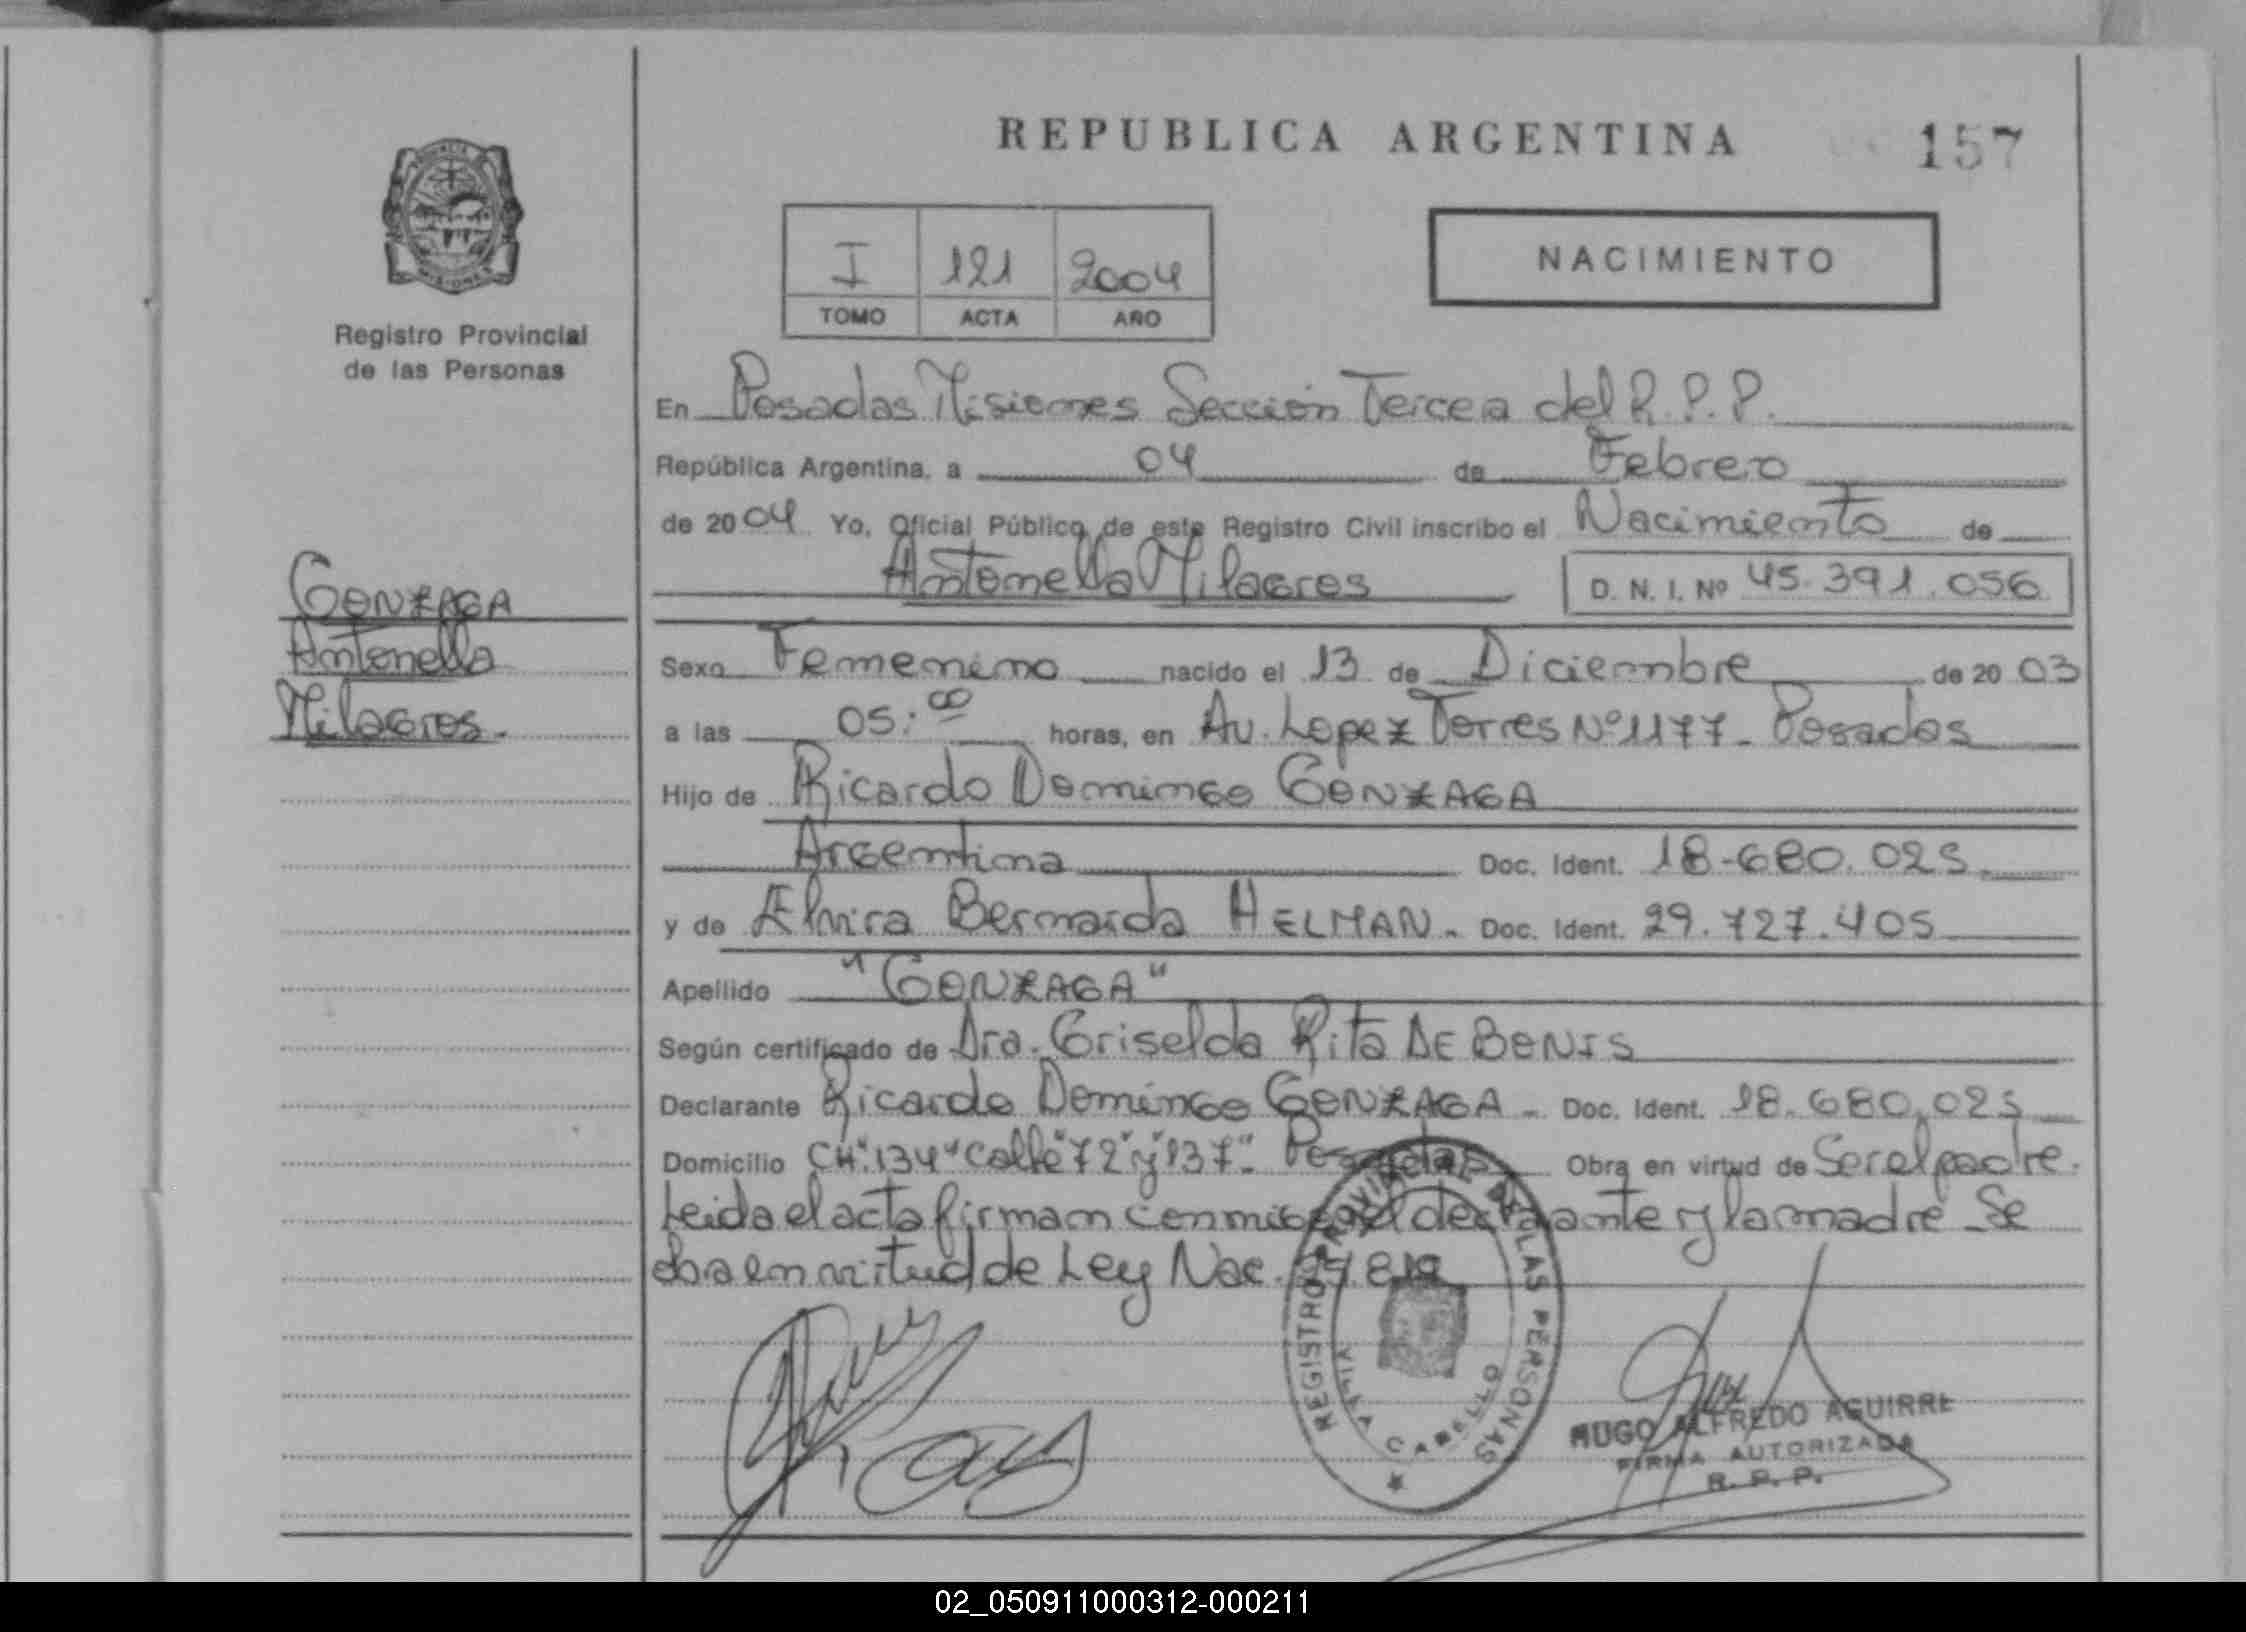 REPUBLICA ARGENTINA
157
I 121 2004
TOMO ACTA AÑO
NACIMIENTO
Registro Provincial
de las Personas
En Posadas Misiones Sección Tercera del R.P.P.
República Argentina, a 04 de Febrero
de 2004 Yo, Oficial Público de este Registro Civil inscribo el Nacimiento de
Antonella Milagros D. N. I. Nº 45.391.056
GONZAGA
Antonella
Milagros.
Sexo Femenino nacido el 13 de Diciembre de 2003
a las 05:00 horas, en Av. Lopez Torres Nº 1177- Posadas
Hijo de Ricardo Domingo GONZAGA
Argentina Doc. Ident. 18-680.025
y de Elvira Bernarda HELMAN - Doc. Ident. 29.727.405
Apellido "GONZAGA"
Según certificado de Dra. Griselda Rita DE BONIS
Declarante Ricardo Domingo GONZAGA - Doc. Ident. 18.680.025
Domicilio CH"134" Calle "72" y "137"- Posadas Obra en virtud de Ser el padre.
Leida el acta firman conmigo el declarante y la madre Se
obra en virtud de Ley Nac.
REGISTRO PROVINCIAL DE LAS PERSONAS
VILLA CABELLO
HUGO ALFREDO AGUIRRE
FIRMA AUTORIZADA
R. P. P.
02_050911000312-000211